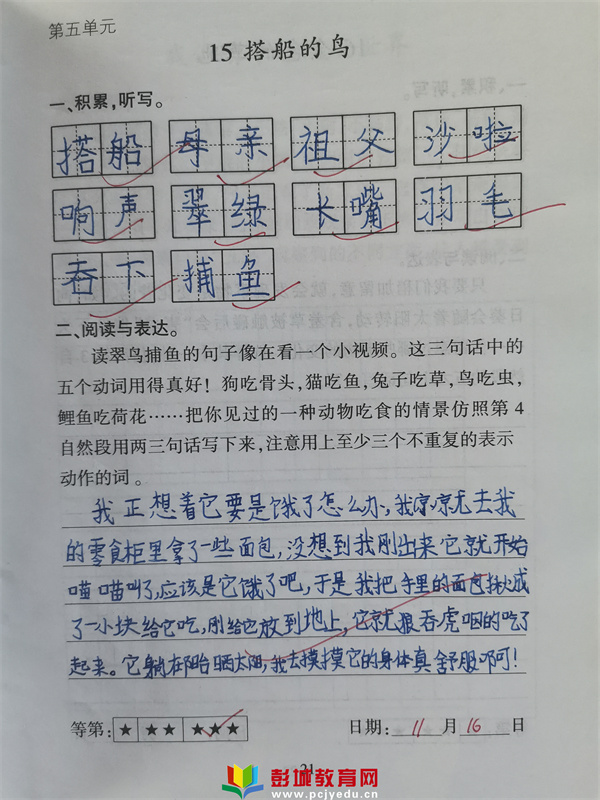 第五单元
15 搭船的鸟
一、积累,听写。
搭船 母亲 祖父 沙啦
响声 翠绿 长嘴 羽毛
吞下 捕鱼
二、阅读与表达。
读翠鸟捕鱼的句子像在看一个小视频。这三句话中的
五个动词用得真好!狗吃骨头,猫吃鱼,兔子吃草,鸟吃虫,
鲤鱼吃荷花……把你见过的一种动物吃食的情景仿照第4
自然段用两三句话写下来,注意用上至少三个不重复的表示
动作的词。
我正想着它要是饿了怎么办,我就去我
的零食柜里拿了一些面包,没想到我刚出来它就开始
喵喵叫了,应该是它饿了吧,于是我把手里的面包掰成
了一小块给它吃,刚给它放到地上,它就狼吞虎咽的吃了
起来。它躺在那晒太阳,我去摸摸它的身体真舒服啊!
等第: ★ ★★ ★★★ 日期: 11 月 16 日
21
彭城教育网
www.pcjyedu.cn